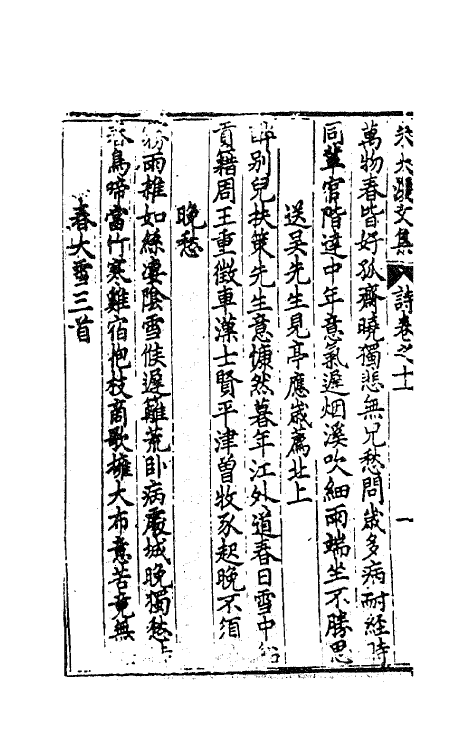 朱大復文集 詩卷之十 一
萬物春皆好孤齋曉獨悲無兄愁問歲多病耐經時
同輩官階達中年意氣遲烟溪吹細雨端坐不勝思
送吳先生見亭應歲薦北上
別兒扶策先生意慷然暮年江外道春日雪中船
貢籍周王重徵車漢士賢平津曾牧豕起晚不須
晚愁
雨摧如絲凄陰雪候遲籬荒卧病嚴城晚獨愁
鳥啼當竹寒雞宿抱枝商歌擁大布意苦竟無
春大雪三首